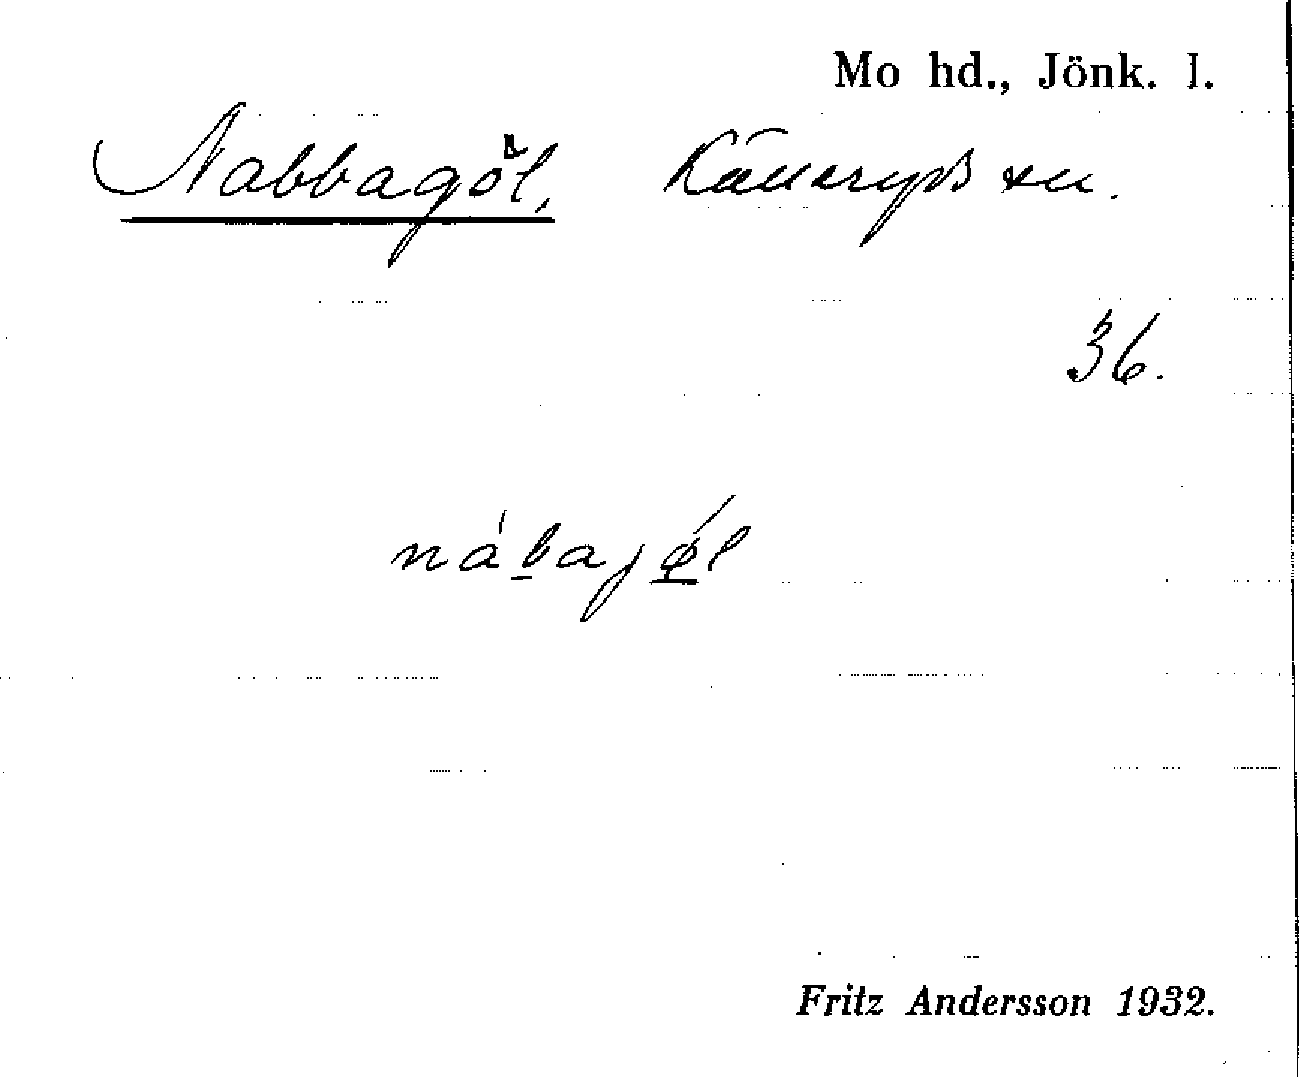 Mo hd., Jönk. l.
Nabbagöl, Källeryds sn.
36.
nábajǿ̱l
Fritz Andersson 1932.